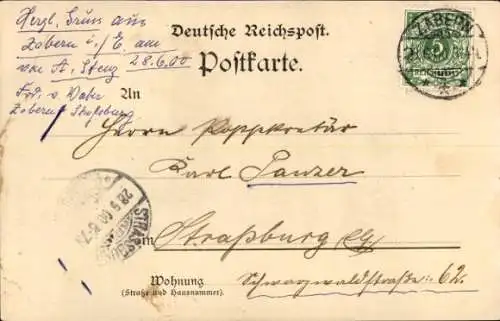 Herzl. Gruss aus
Zabern i./E. am
von A. Stenz 28.6.00
Frd. v. Vater
Zabern Straßburg
Deutsche Reichspost.
Postkarte.
ZABERN
An
Herrn
Karl Panzer
STRASSBURG
28.6.00
in Straßburg (Els)
Wohnung
(Straße und Hausnummer)
Schwarzwaldstraße: 62.